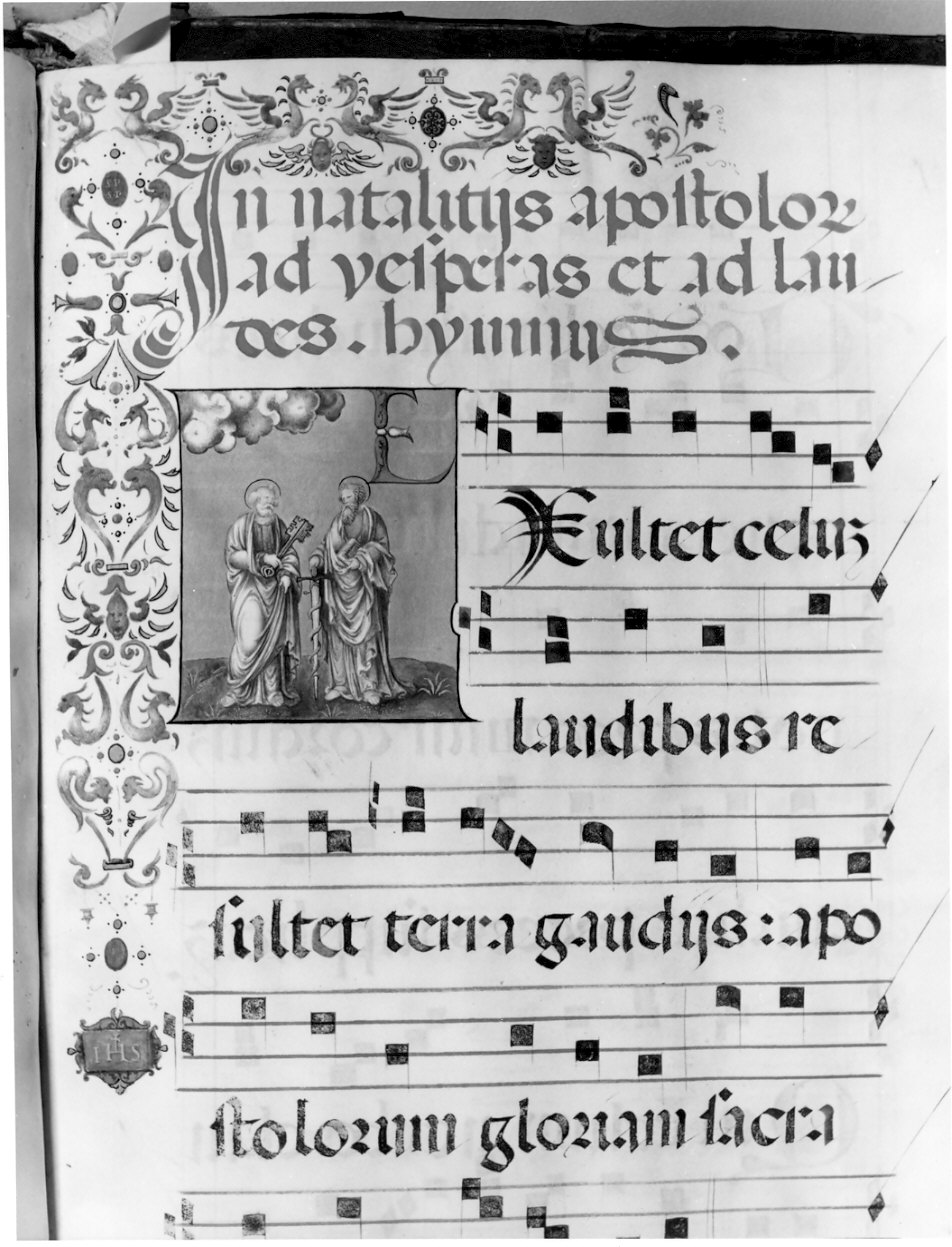 In natalitijs apostoloꝝ
ad vesperas et ad lau
des. hymnus.
E
Exultet celuꝫ
laudibus re
sultet terra gaudijs : apo
stolorum gloriam sacra
IHS